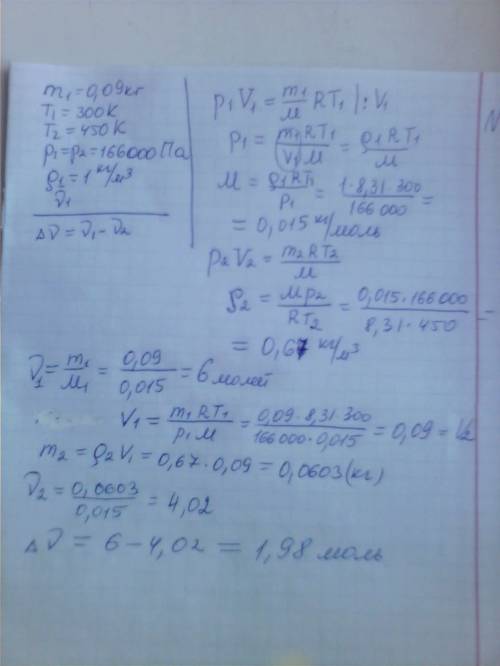 m₁ = 0,09 кг
T₁ = 300 К
T₂ = 450 К
p₁ = p₂ = 166000 Па
ρ₁ = 1 кг/м³
ν₁
Δν = ν₁ - ν₂
p₁V₁ = m₁/M RT₁ |: V₁
p₁ = m₁RT₁/V₁M = ρ₁RT₁/M
M = ρ₁RT₁/p₁ = 1·8,31·300/166 000 =
= 0,015 кг/моль
p₂V₂ = m₂RT₂/M
ρ₂ = Mp₂/RT₂ = 0,015·166 000/8,31·450 =
= 0,67 кг/м³
ν₁ = m₁/M₁ = 0,09/0,015 = 6 молей
V₁ = m₁RT₁/p₁M = 0,09·8,31·300/166 000·0,015 = 0,09 = V₂
m₂ = ρ₂V₁ = 0,67·0,09 = 0,0603 (кг)
ν₂ = 0,0603/0,015 = 4,02
Δν = 6 - 4,02 = 1,98 моль
N